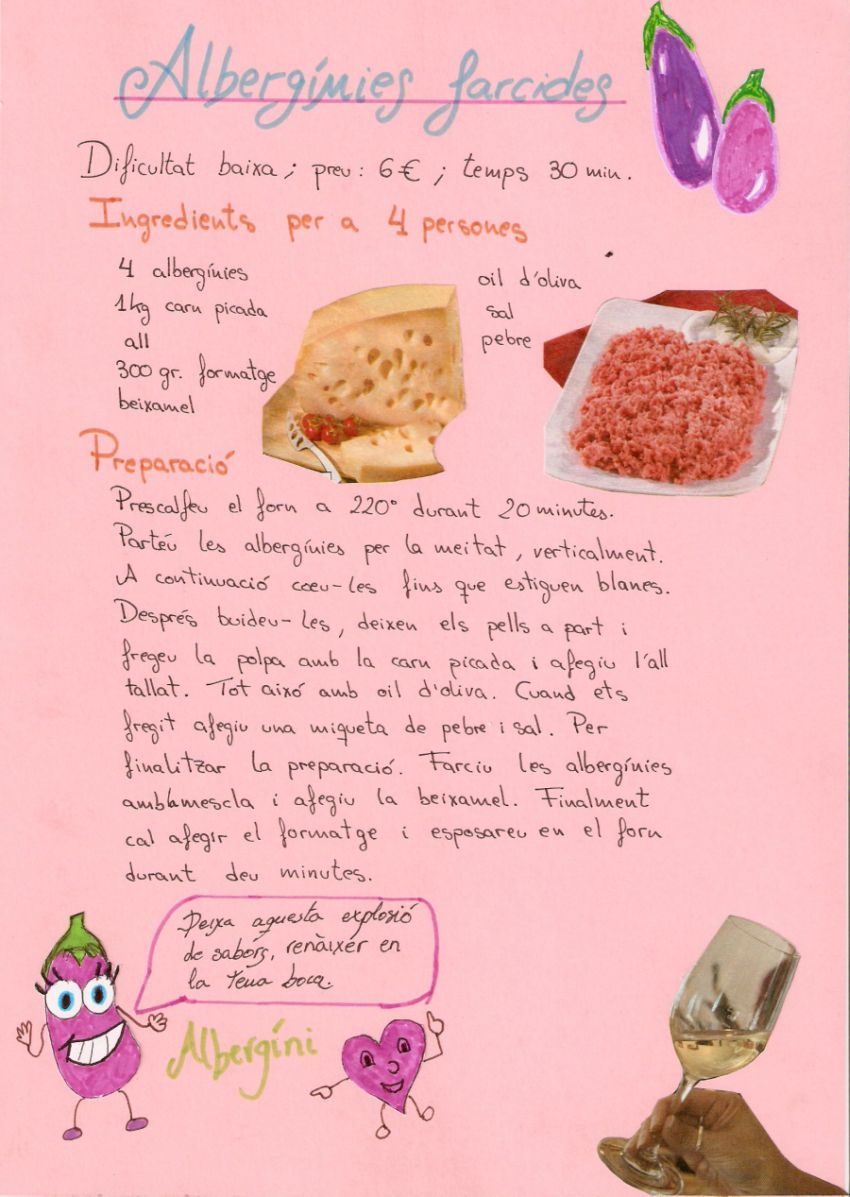 Albergínies farcides
Dificultat baixa; preu: 6€; temps 30 min.
Ingredients per a 4 persones
4 albergínies
1kg carn picada
all
300 gr. formatge
beixamel
oil d'oliva
sal
pebre
Preparació
Prescalfeu el forn a 220° durant 20 minutes.
Partéu les albergínies per la meitat, verticalment.
A continuació coeu-les fins que estiguen blanes.
Després buideu-les, deixen els pells a part i
fregeu la polpa amb la carn picada i afegiu l'all
tallat. Tot aixó amb oil d'oliva. Cuand ets
fregit afegiu una miqueta de pebre i sal. Per
finalitzar la preparació. Farciu les albergínies
amb la mescla i afegiu la beixamel. Finalment
cal afegir el formatge i esposareu en el forn
durant deu minutes.
Deixa aquesta explosió
de sabórs, renàixer en
la teua boca.
Albergíni